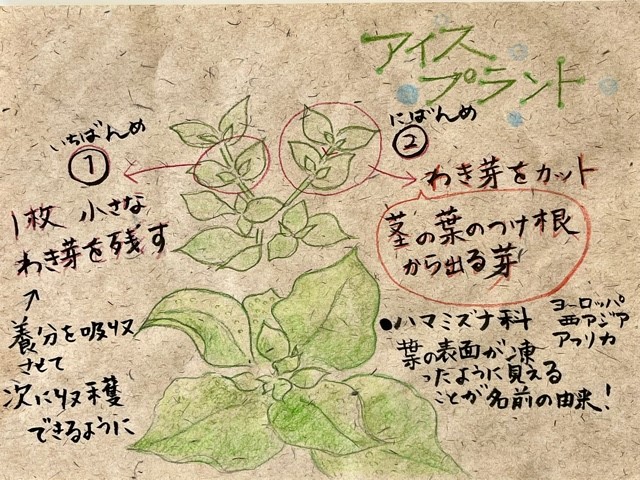 アイス
プラント
いちばんめ
①
1枚 小さな
わき芽を残す
↑
養分を吸収
させて
次に収穫
できるように
にばんめ
②
わき芽をカット
茎の葉のつけ根
から出る芽
●ハマミズナ科
ヨーロッパ
西アジア
アフリカ
葉の表面が凍
ったように見える
ことが名前の由来!